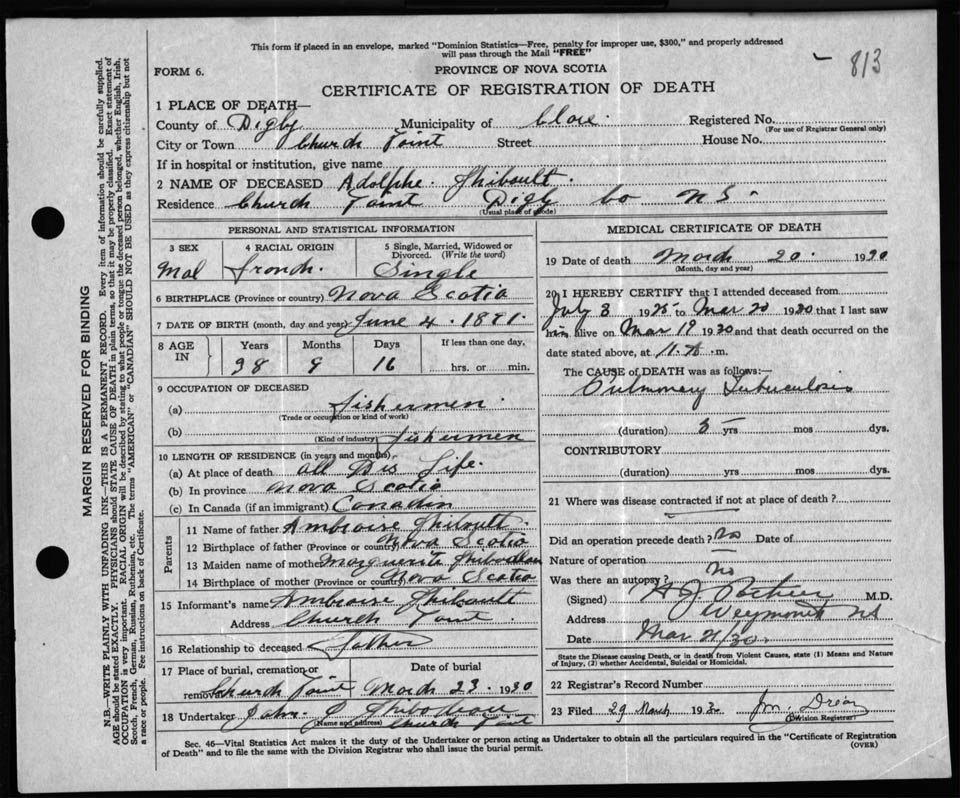 This form if placed in an envelope, marked "Dominion Statistics—Free, penalty for improper use, $300," and properly addressed
will pass through the Mail "FREE"
813
FORM 6.
PROVINCE OF NOVA SCOTIA
CERTIFICATE OF REGISTRATION OF DEATH
1 PLACE OF DEATH—
County of Digby Municipality of Clare. Registered No.
(For use of Registrar General only)
City or Town Church Point Street House No.
If in hospital or institution, give name
2 NAME OF DECEASED Adolphe. Thibault.
Residence Church Point Digby Co N S.
(Usual place of abode)
PERSONAL AND STATISTICAL INFORMATION
3 SEX 4 RACIAL ORIGIN 5 Single, Married, Widowed or Divorced. (Write the word)
Mal french. Single
6 BIRTHPLACE (Province or country) Nova Scotia
7 DATE OF BIRTH (month, day and year) June 4. 1891.
8 AGE IN Years Months Days If less than one day,
38 9 16 hrs. or min.
9 OCCUPATION OF DECEASED
(a) fishermen.
(Trade or occupation or kind of work)
(b) fishermen
(Kind of industry)
10 LENGTH OF RESIDENCE (in years and months)
(a) At place of death all His Life.
(b) In province Nova Scotia
(c) In Canada (if an immigrant) Canadin
Parents
11 Name of father Ambroise Thibault.
12 Birthplace of father (Province or country) Nova Scotia
13 Maiden name of mother Marguerite Thibodeau
14 Birthplace of mother (Province or country) Nova Scotia
15 Informant's name Ambroise Thibault
Address Church Point.
16 Relationship to deceased father
17 Place of burial, cremation or removal Date of burial
Church Point March 23. 1930
18 Undertaker John. Thibodeau
(Name and address) Church Point
MEDICAL CERTIFICATE OF DEATH
19 Date of death March 20. 1930
(Month, day and year)
20 I HEREBY CERTIFY that I attended deceased from
July 3 1925 to Mar 20 1930 that I last saw
him alive on Mar 19 1930 and that death occurred on the
date stated above, at 11. A. m.
The CAUSE of DEATH was as follows:—
Pulmmary Tuberculosis
(duration) 5 yrs mos dys.
CONTRIBUTORY
(duration) yrs mos dys.
21 Where was disease contracted if not at place of death?
Did an operation precede death? No Date of
Nature of operation
Was there an autopsy? No
(Signed) M.D.
Address Weymouth NS
Date Mar 21/30.
State the Disease causing Death, or in death from Violent Causes, state (1) Means and Nature
of Injury, (2) whether Accidental, Suicidal or Homicidal.
22 Registrar's Record Number
23 Filed 29 March 193
(Division Registrar)
Sec. 46—Vital Statistics Act makes it the duty of the Undertaker or person acting as Undertaker to obtain all the particulars required in the "Certificate of Registration
of Death" and to file the same with the Division Registrar who shall issue the burial permit.
(OVER)
MARGIN RESERVED FOR BINDING
N.B.—WRITE PLAINLY WITH UNFADING INK—THIS IS A PERMANENT RECORD. Every item of information should be carefully supplied.
AGE should be stated EXACTLY. PHYSICIANS should STATE CAUSE OF DEATH in plain terms, so that it may be properly classified. Exact statement of
OCCUPATION is very important. RACIAL ORIGIN will be described by stating to what people or tongue the deceased person belonged, whether English, Irish,
Scotch, French, German, Russian, Ruthenian, etc. The terms "AMERICAN" or "CANADIAN" SHOULD NOT BE USED as they express citizenship but not
a race or people. See instructions on back of Certificate.